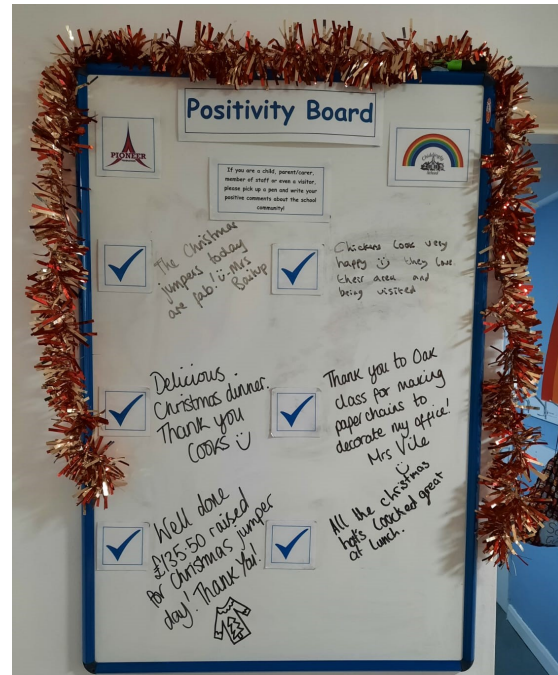 Positivity Board
PIONEER
If you are a child, parent/carer,
member of staff or even a visitor,
please pick up a pen and write your
positive comments about the school
community!
The Christmas
jumpers today
are fab! Mrs
Bastup
Chickens look very
happy they love
their area and
being visited
Delicious
Christmas dinner.
Thank you
cooks
Thank you to Oak
class for making
paperchains to
decorate my office!
Mrs Vile
Well done
£135.50 raised
for Christmas jumper
day! Thank You!
All the christmas
hat's loocked great
at lunch.